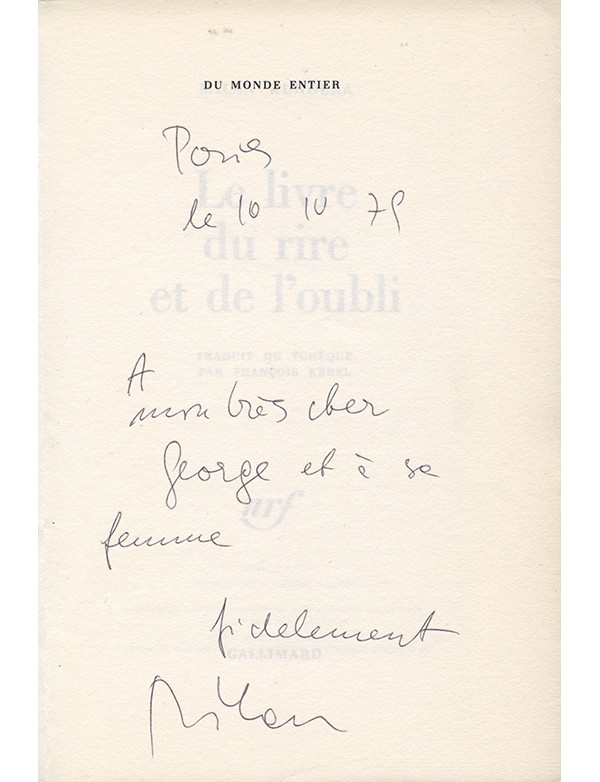 DU MONDE ENTIER
Paris
le 10 IV 79
Le livre
du rire
et de l'oubli
TRADUIT DU TCHÈQUE
PAR FRANÇOIS KÉREL
A
mon très cher
George et à sa
femme
nrf
fidelement
GALLIMARD
Milan